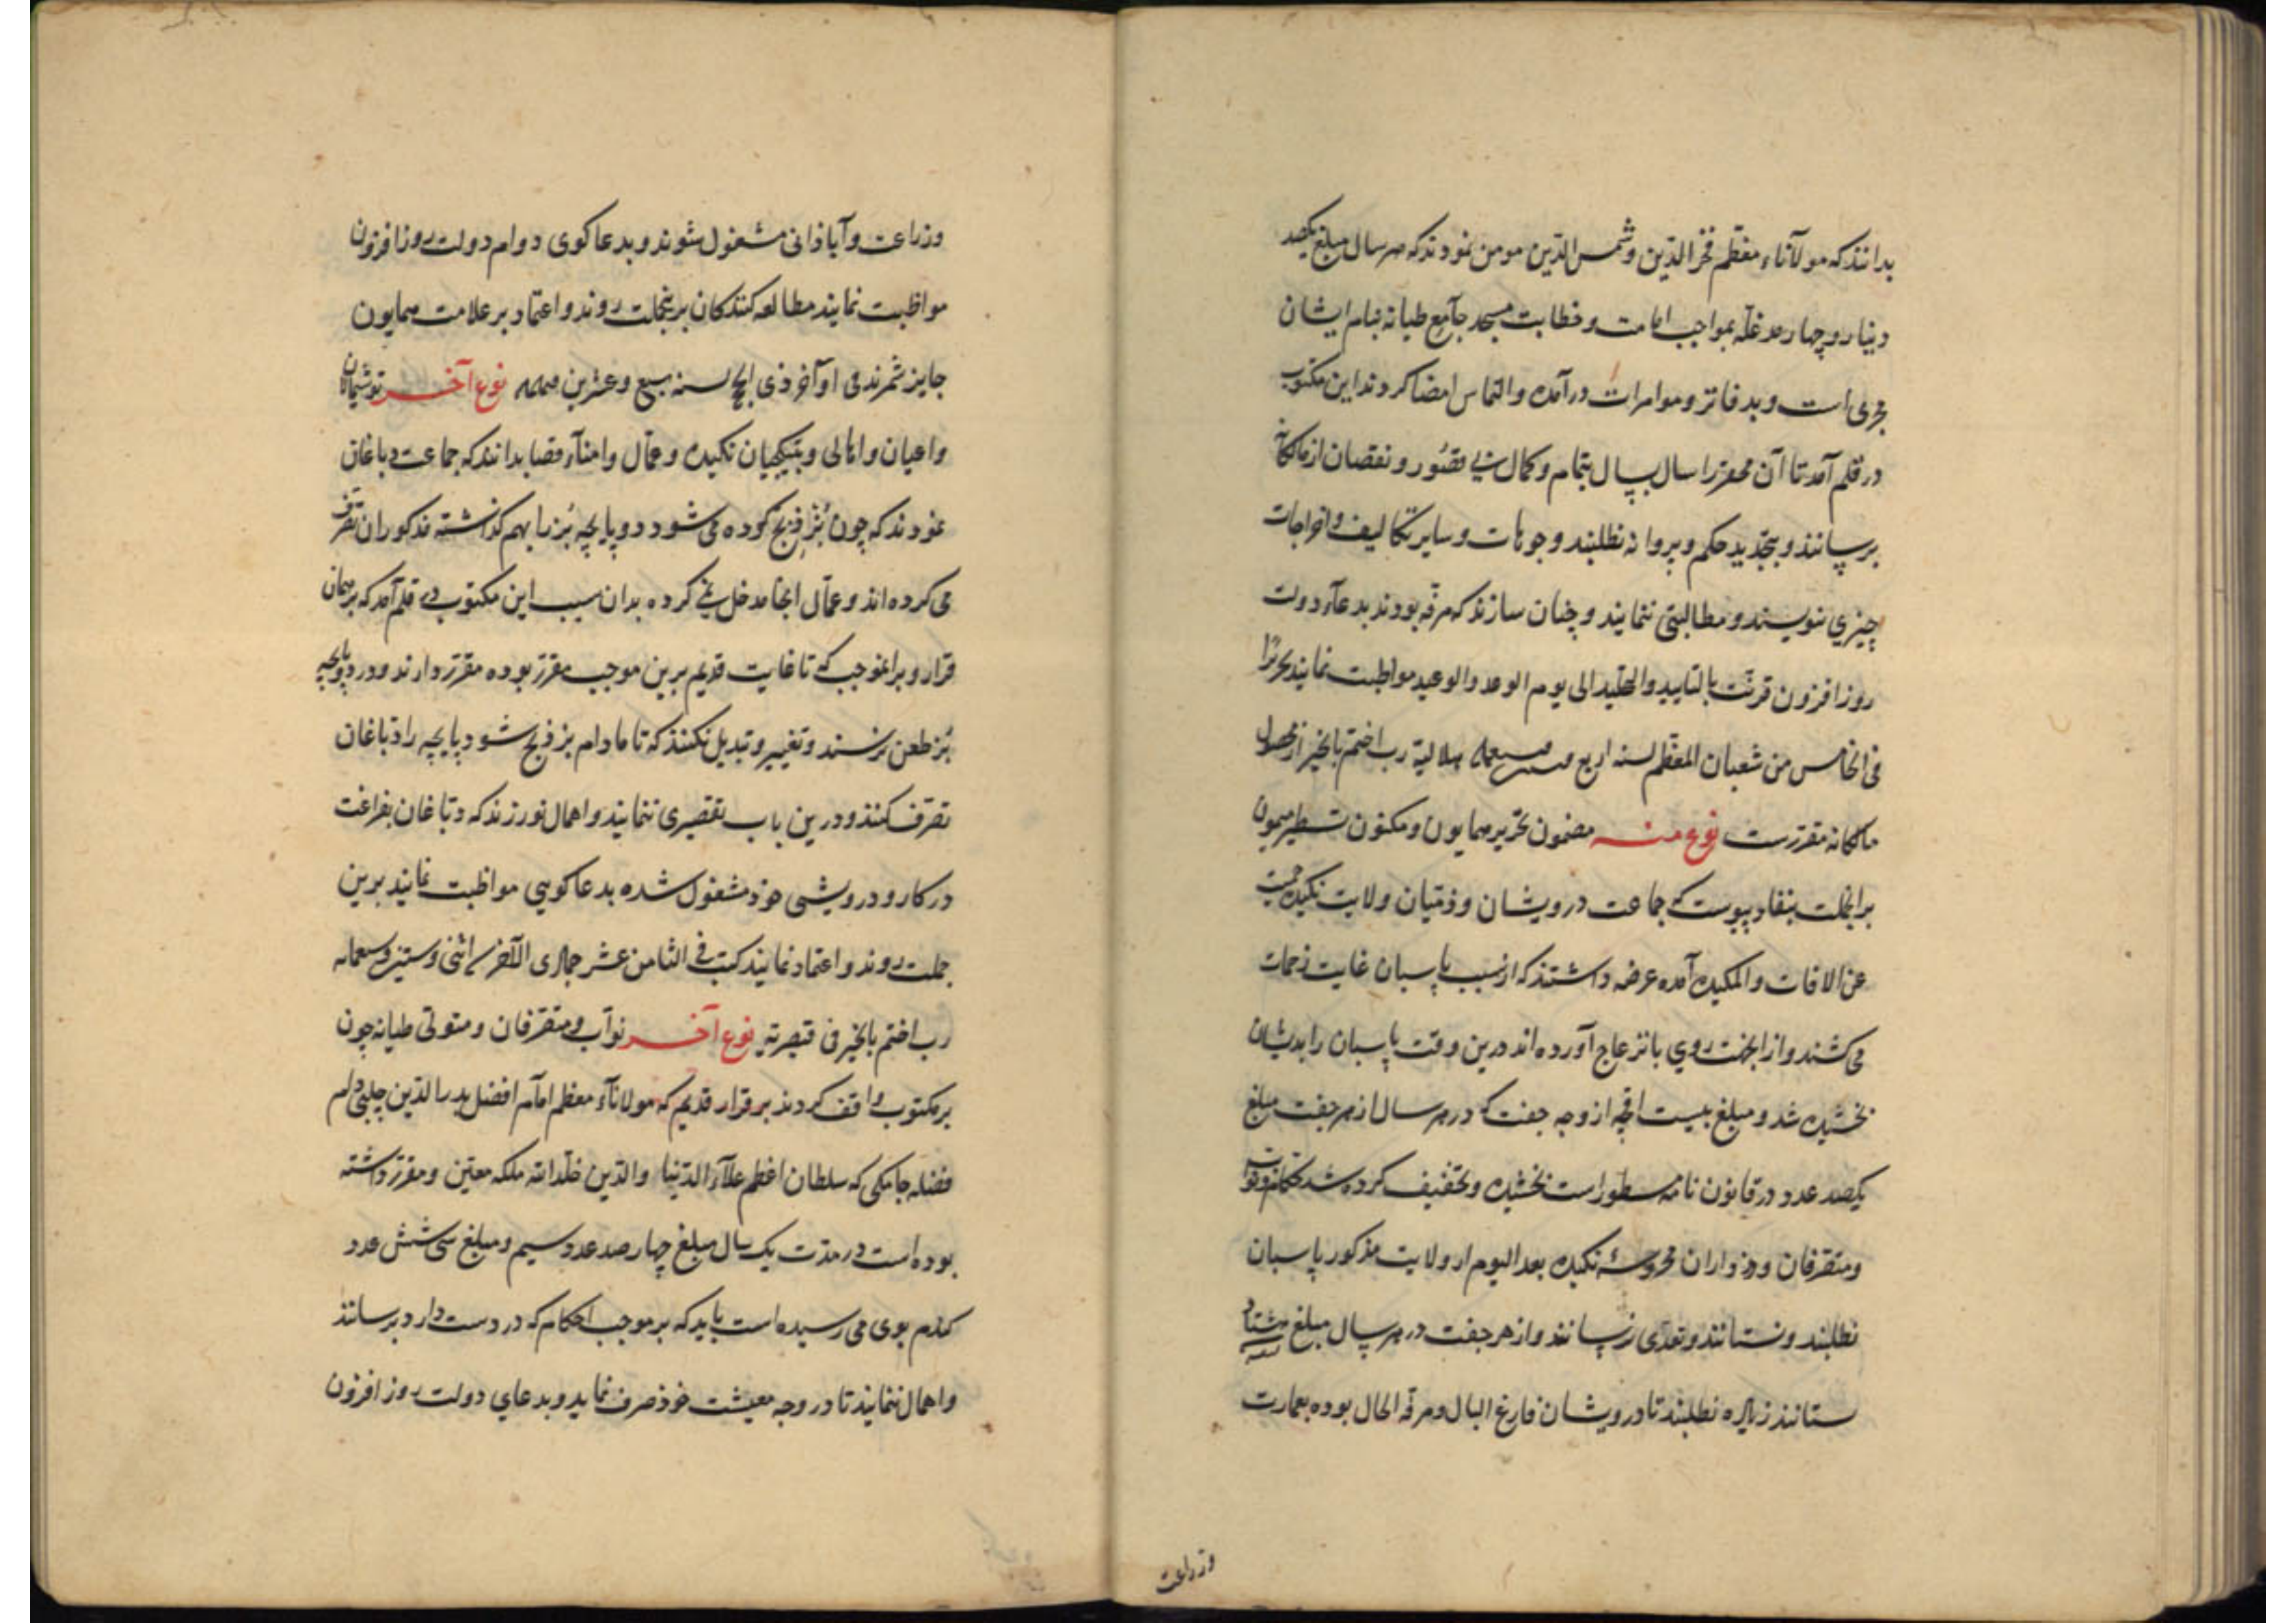 بدانند که مولاناء معظم فخر الدین و شمس الدین مومن نمودند که هر سال مبلغ یکصد
دینار و چهار مد غله بمواجب امامت و خطابت مسجد جامع طیانه بنام ایشان
مجری است و بدفاتر و موامرات در آمده و التماس امضا کردند این مکتوب
در قلم آمد تا آن محقر را سال بسال بتمام و کمال بی قصور و نقصان از مالکانه
برسانند و بتجدید حکم و پروانه نطلبند و جوهات و سایر تکالیف و اخراجات
چیزی ننویسند و مطالبتی ننمایند و چنان سازند که مرفه بوده بدعاء دولت
روز افزون قرنت بالتایید والتخلید الی یوم الوعد والوعید مواظبت نمایند تحریرا
فی الخامس من شعبان المعظم لسنه اربع هلالیة رب اختم بالخیر از محصول
مالکانه مقررست نوع منه مضمون تحریر همایون و مکنون تسطیر میمون
برانجملت بنفاد پیوست که جماعت درویشان و ذمّیان ولایت نکیده حمیت
عن الافات والمکیده آمده عرضه داشتند که از سبب پاسبان غایت زحمات
می کشند و از انجهت روی بانزعاج آورده اند درین وقت پاسبان را بدیشان
بخشیده شد و مبلغ بیست اقچه از وجه جفت که در هر سال از هر جفت مبلغ
یکصد عدد در قانون نامه مسطور است بخشیده و تخفیف کرده شد حکام و نواب
و متصرفان و وزداران محروسۀ نکیده بعد الیوم از ولایت مذکور پاسبان
نطلبند و نستانند و تعدی نرسانند و از هر جفت در هر سال مبلغ هشتاد
ستانند زیاده نطلبند تا درویشان فارغ البال و مرفه الحال بوده بعمارت
وزراعت
وزراعت و آباذانی مشغول شوند و بدعاکوی دوام دولت روز افزون
مواظبت نمایند مطالعه کنندکان برینجملت روند و اعتماد بر علامت همایون
جایز شمرند فی اواخر ذی الحج لسنه سبع و عشرین نوع آخر
و اعیان و اهالی و بتیکچیان نکیده و عمال و امناء قصابدانند که جماعت دباغان
نمودند که چون بُز ذبح کرده می شود دو پایچه بُز را بهم کذاشته مذکوران تصرف
می کرده اند و عمال انجا مدخل نمی کرده بدان سبب این مکتوب در قلم آمد که بر همان
قرار و برانموجب که تا غایت قدیم برین موجب مقرر بوده مقرر دارند و در دو پایچه
بُز طعن نرسند و تغییر و تبدیل نکنند که تا مادام بز ذبح شود پایچه را دباغان
تصرف کنند و درین باب تقصیری ننمایند و اهمال نورزند که دباغان بفراغت
در کار و درویشی خوذ مشغول شده بدعاکویی مواظبت نمایند برین
جملت روند و اعتماد نمایند کتب فی الثامن عشر جمادی الاخر اثنی و ستین وسبعمایه
رب اختم بالخیر فی قیصریه نوع آخر نواب و متصرفان و متولی طیانه چون
بر مکتوب واقف کردند بر قرار قدیم که مولاناء معظم امام افضل بدر الدین چلبی دام
فضله جامکی که سلطان اعظم علاء الدنیا والدین خلد الله ملکه معین و مقرر داشته
بوده است در مدت یک سال مبلغ چهار صد عدد سیم و مبلغ سی شش عدد
کندم بوی می رسیده است باید که بر موجب احکام که در دست دارد برسانند
و اهمال ننمایند تا در وجه معیشت خوذ صرف نماید و بدعای دولت روز افزون